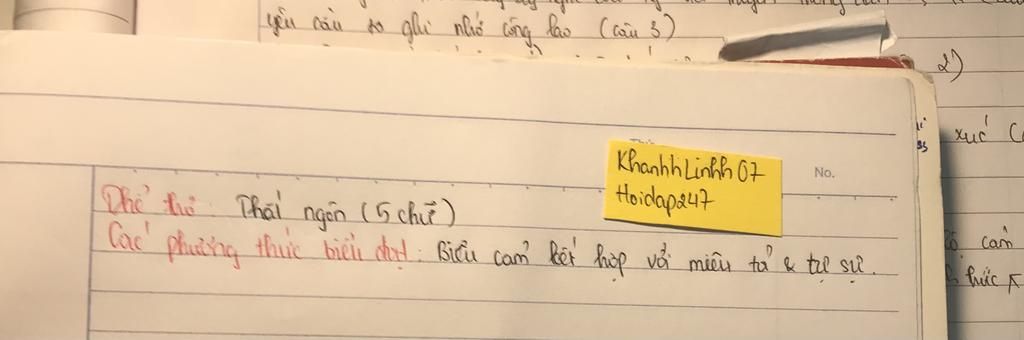 yêu cầu ghi nhớ công lao (câu 3)
2)
xúc
No.
KhanhhLinhh07
Hoidap247
Thể thơ: Thất ngôn (5 chữ)
Các phương thức biểu đạt: Biểu cảm kết hợp với miêu tả & tự sự.
cảm
thức